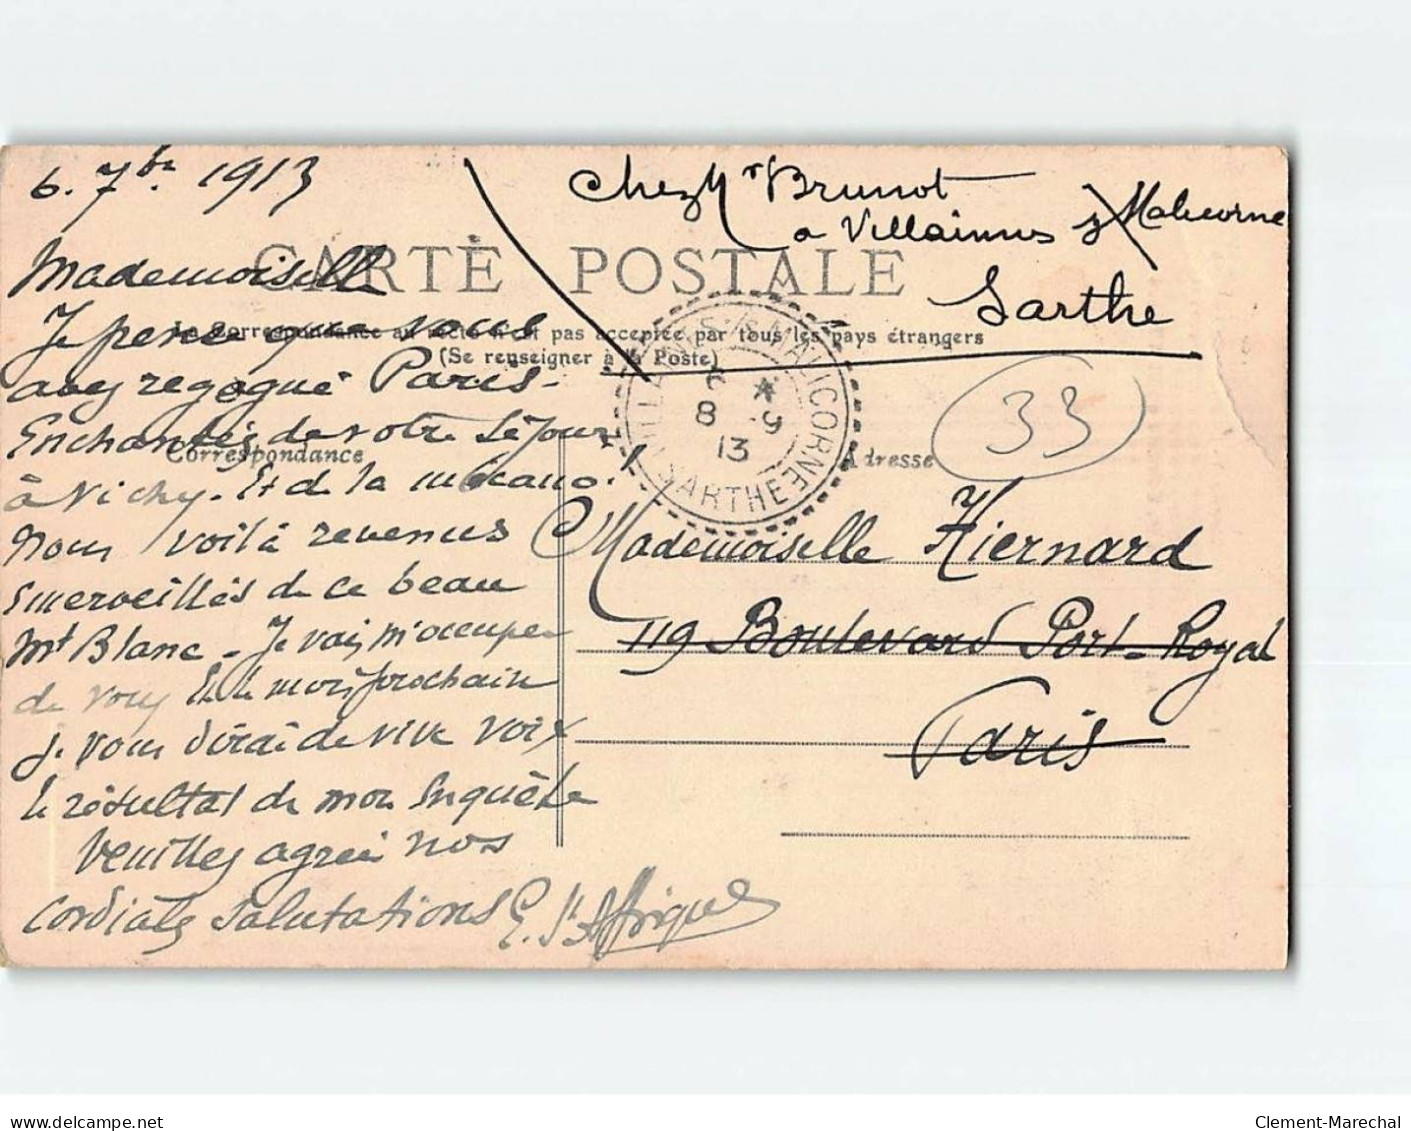 6. 7bre 1913
Mademoiselle
Je pense que vous
avez regagné Paris.
Enchantés de votre séjour
à Vichy. Et de la mécano.
Nous voilà revenus
émerveillés de ce beau
Mt Blanc - Je vais m'occuper
de vous Et le mois prochain
Je vous dirai de vive voix
le résultat de mon Enquête
Veuillez agréer nos
cordiales salutations E. St Affrique
CARTE POSTALE
La Correspondance au recto n'est pas acceptée par tous les pays étrangers
(Se renseigner à la Poste)
Correspondance
Adresse
Chez Mr Brunot
a Villaines s/ Malicorne
Sarthe
VILLAINES-S-MALICORNE
8 -9
13
SARTHE
33
Mademoiselle Hiernard
119 Boulevard Port-Royal
Paris
Clement-Marechal
www.delcampe.net